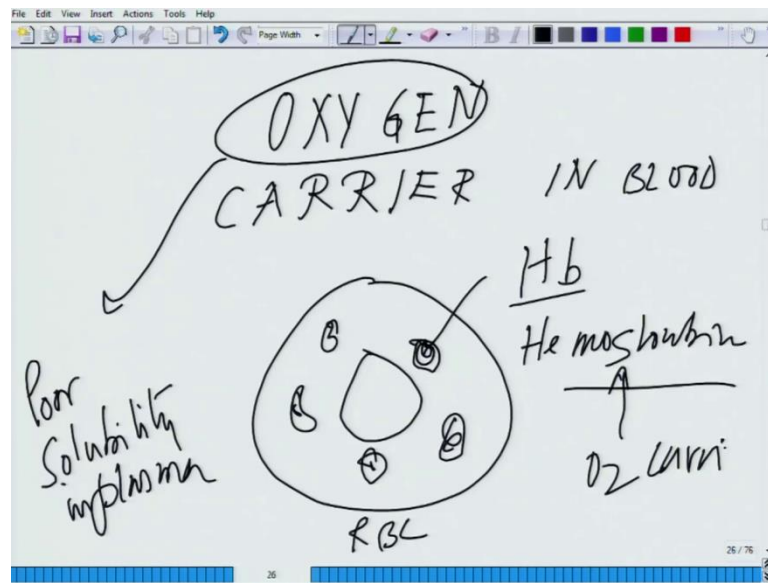 File Edit View Insert Actions Tools Help
Page Width
B I
OXYGEN
CARRIER IN BLOOD
Hb
Hemoglobin
O2 carri
Poor
Solubility
in plasma
RBC
26 / 76
26